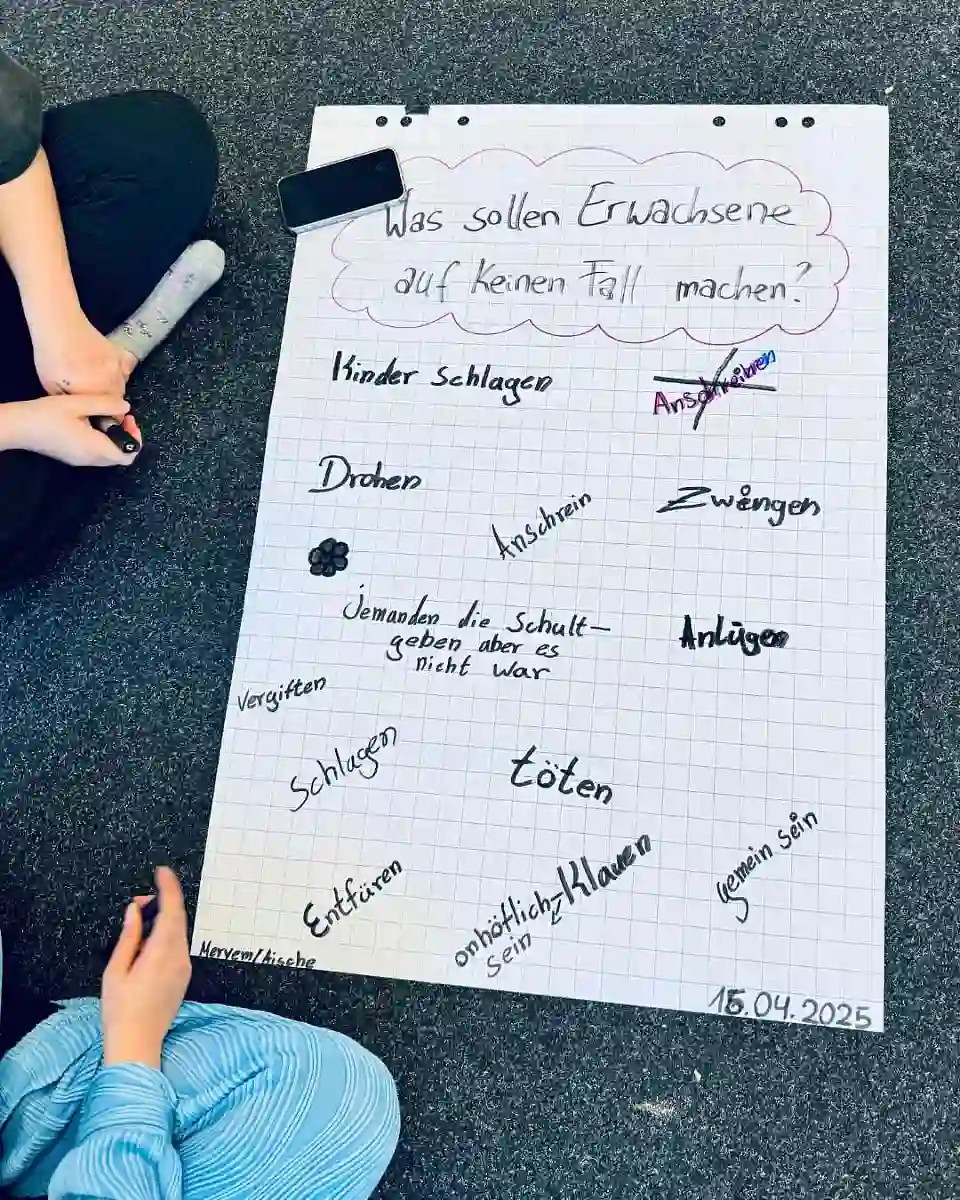 Was sollen Erwachsene
auf keinen Fall machen?
Kinder schlagen
Anschreiben
Drohen
Anschrein
Zwängen
Jemanden die Schult-
geben aber es
nicht war
Anlügen
Vergiften
Schlagen
töten
Entfüren
Klauen
onhöflich
sein
gemein sein
Meryem/Aische
15.04.2025